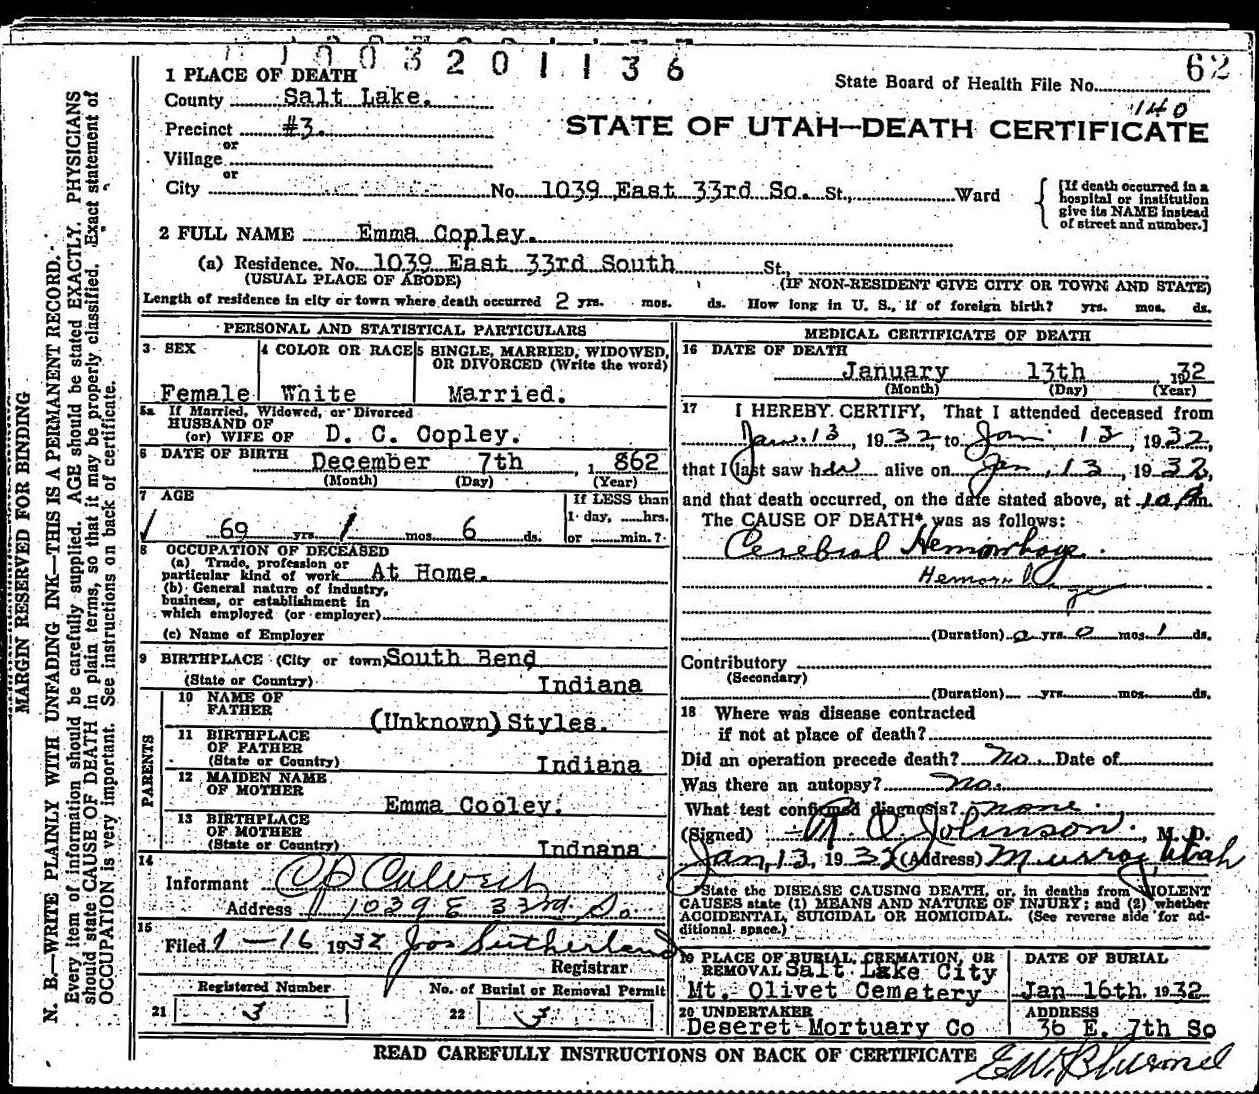 1003201136
62
State Board of Health File No.
140
1 PLACE OF DEATH
County Salt Lake.
Precinct #3.
or
Village
or
City No. 1039 East 33rd So. St., Ward
[If death occurred in a hospital or institution give its NAME instead of street and number.]
STATE OF UTAH—DEATH CERTIFICATE
2 FULL NAME Emma Copley.
(a) Residence. No. 1039 East 33rd South St.,
(USUAL PLACE OF ABODE) (IF NON-RESIDENT GIVE CITY OR TOWN AND STATE)
Length of residence in city or town where death occurred 2 yrs. mos. ds. How long in U. S., if of foreign birth? yrs. mos. ds.
PERSONAL AND STATISTICAL PARTICULARS
3 SEX
Female
4 COLOR OR RACE
White
5 SINGLE, MARRIED, WIDOWED,
OR DIVORCED (Write the word)
Married.
5a If Married, Widowed, or Divorced
HUSBAND OF
(or) WIFE OF D. C. Copley.
6 DATE OF BIRTH December 7th, 1862
(Month) (Day) (Year)
7 AGE
69 yrs. 1 mos. 6 ds.
If LESS than
1 day, hrs.
or min.?
8 OCCUPATION OF DECEASED
(a) Trade, profession or
particular kind of work At Home.
(b) General nature of industry,
business, or establishment in
which employed (or employer)
(c) Name of Employer
9 BIRTHPLACE (City or town) South Bend
(State or Country) Indiana
PARENTS
10 NAME OF
FATHER (Unknown) Styles.
11 BIRTHPLACE
OF FATHER
(State or Country) Indiana
12 MAIDEN NAME
OF MOTHER Emma Cooley.
13 BIRTHPLACE
OF MOTHER
(State or Country) Indnana
14
Informant CD Calvert
Address 1039 E 33rd. So.
15
Filed 1-16 1932 Jos Sutherland
Registrar.
Registered Number
21 3
No. of Burial or Removal Permit
22 3
MEDICAL CERTIFICATE OF DEATH
16 DATE OF DEATH
January 13th 1932
(Month) (Day) (Year)
17 I HEREBY CERTIFY, That I attended deceased from
Jan. 13, 1932 to Jan 13, 1932,
that I last saw her alive on Jan, 13, 1932,
and that death occurred, on the date stated above, at 10 P.m.
The CAUSE OF DEATH* was as follows:
Cerebral Hemorrhage.
Hemorrhage
(Duration) 0 yrs. 0 mos. 1 ds.
Contributory
(Secondary)
(Duration) yrs. mos. ds.
18 Where was disease contracted
if not at place of death?
Did an operation precede death? No. Date of
Was there an autopsy? No.
What test confirmed diagnosis? none.
(Signed) Johnson, M. D.
Jan, 13, 1932 (Address) Murray Utah
State the DISEASE CAUSING DEATH, or, in deaths from VIOLENT
CAUSES state (1) MEANS AND NATURE OF INJURY; and (2) whether
ACCIDENTAL, SUICIDAL OR HOMICIDAL. (See reverse side for ad-
ditional space.)
19 PLACE OF BURIAL, CREMATION, OR
REMOVAL Salt Lake City
Mt. Olivet Cemetery
DATE OF BURIAL
Jan 16th. 1932.
20 UNDERTAKER
Deseret Mortuary Co
ADDRESS
36 E. 7th So
READ CAREFULLY INSTRUCTIONS ON BACK OF CERTIFICATE
MARGIN RESERVED FOR BINDING
N. B.—WRITE PLAINLY WITH UNFADING INK—THIS IS A PERMANENT RECORD.
Every item of information should be carefully supplied. AGE should be stated EXACTLY. PHYSICIANS
should state CAUSE OF DEATH in plain terms, so that it may be properly classified. Exact statement of
OCCUPATION is very important. See instructions on back of certificate.